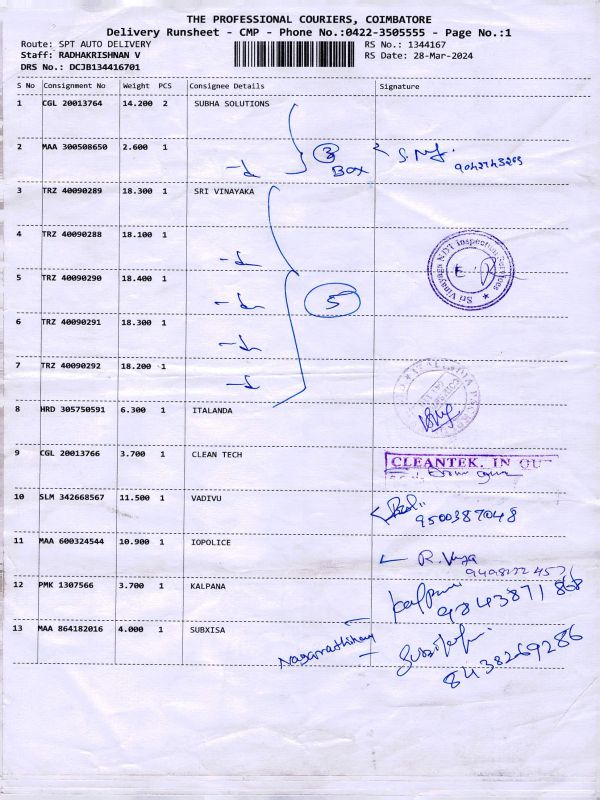 THE PROFESSIONAL COURIERS, COIMBATORE
Delivery Runsheet - CMP - Phone No.:0422-3505555 - Page No.:1
Route: SPT AUTO DELIVERY RS No.: 1344167
Staff: RADHAKRISHNAN V RS Date: 28-Mar-2024
DRS No.: DCJB134416701
S No Consignment No Weight PCS Consignee Details Signature
1 CGL 20013764 14.200 2 SUBHA SOLUTIONS
2 MAA 300508650 2.600 1
3 BOX
3 TRZ 40090289 18.300 1 SRI VINAYAKA
4 TRZ 40090288 18.100 1
Sri Vinayaga NDT Inspection Services
5 TRZ 40090290 18.400 1 5
6 TRZ 40090291 18.300 1
7 TRZ 40090292 18.200 1
8 HRD 305750591 6.300 1 ITALANDA
9 CGL 20013766 3.700 1 CLEAN TECH CLEANTEK. IN
10 SLM 342668567 11.500 1 VADIVU
9500387048
11 MAA 600324544 10.900 1 IOPOLICE R. Vijaya
12 PMK 1307566 3.700 1 KALPANA Kalpana
9843871868
13 MAA 864182016 4.000 1 SUBXISA
8438269286